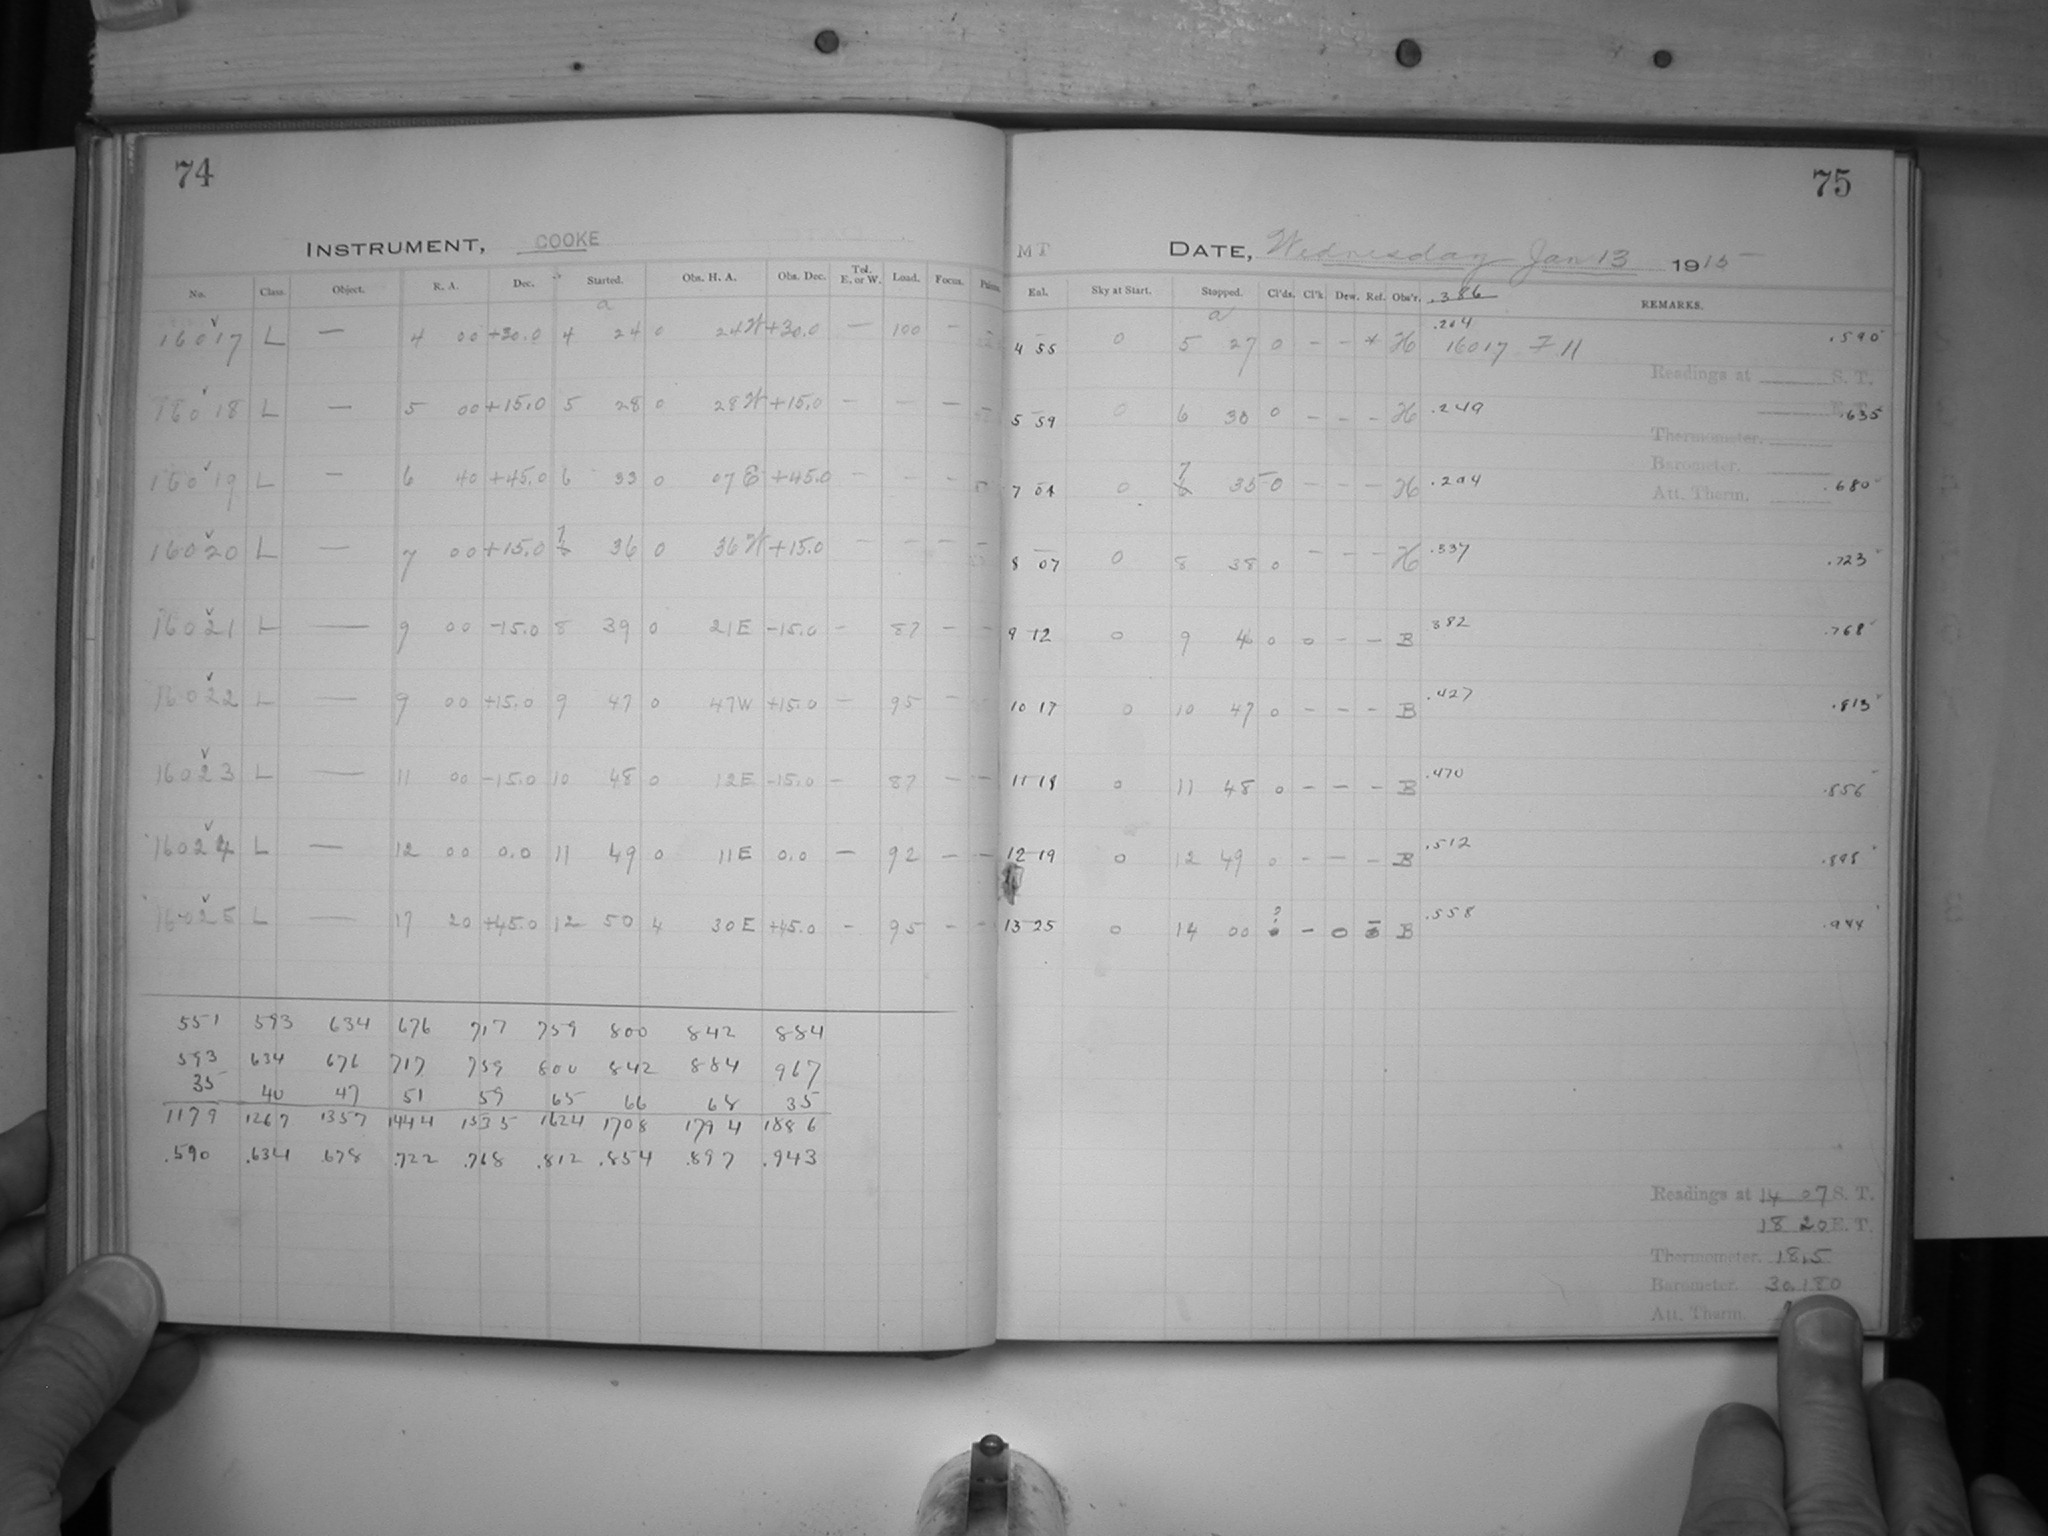 74
INSTRUMENT, COOKE
No. Class. Object. R. A. Dec. Started. Obs. H. A. Obs. Dec. Tel. E. or W. Load. Focus.
a
16017 L — 4 00 +30.0 4 24 0 24 W +30.0 — 100 —
16018 L — 5 00 +15.0 5 28 0 28 W +15.0 — — —
16019 L — 6 40 +45.0 6 33 0 07 E +45.0 — — —
16020 L — 7 00 +15.0 7 36 0 36 W +15.0 — — — —
16021 L — 9 00 -15.0 8 39 0 21 E -15.0 — 87 — —
16022 L — 9 00 +15.0 9 47 0 47 W +15.0 — 95 —
16023 L — 11 00 -15.0 10 48 0 12 E -15.0 — 87 — —
16024 L — 12 00 0.0 11 49 0 11 E 0.0 — 92 — —
16025 L — 17 20 +45.0 12 50 4 30 E +45.0 — 95 — —
551 593 634 676 717 759 800 842 884
593 634 676 717 759 800 842 884 967
35 40 47 51 59 65 66 68 35
1179 1267 1357 1444 1535 1624 1708 1794 1886
.590 .634 .678 .722 .768 .812 .854 .897 .943
75
MT DATE, Wednesday Jan 13 1915
Eal. Sky at Start. Stopped. Cl'ds. Cl'k Dew. Ref. Obs'r. .386 REMARKS.
a
.204
4 55 0 5 27 0 — — * H 16017 F 11 .590
Readings at S. T.
5 59 0 6 30 0 — — — H .249 .635
Thermometer.
Barometer.
7 04 0 7 35 0 — — — H .294 .680
Att. Therm.
8 07 0 8 38 0 — — — H .337 .723
9 12 0 9 46 0 0 — — B 382 .768
10 17 0 10 47 0 — — — B .427 .813
11 18 0 11 48 0 — — — B .470 .856
12 19 0 12 49 0 — — — B .512 .898
13 25 0 14 00 — 0 B .558 .944
Readings at 14 07 S. T.
18 20 E. T.
Thermometer. 18.5
Barometer. 30.180
Att. Therm.